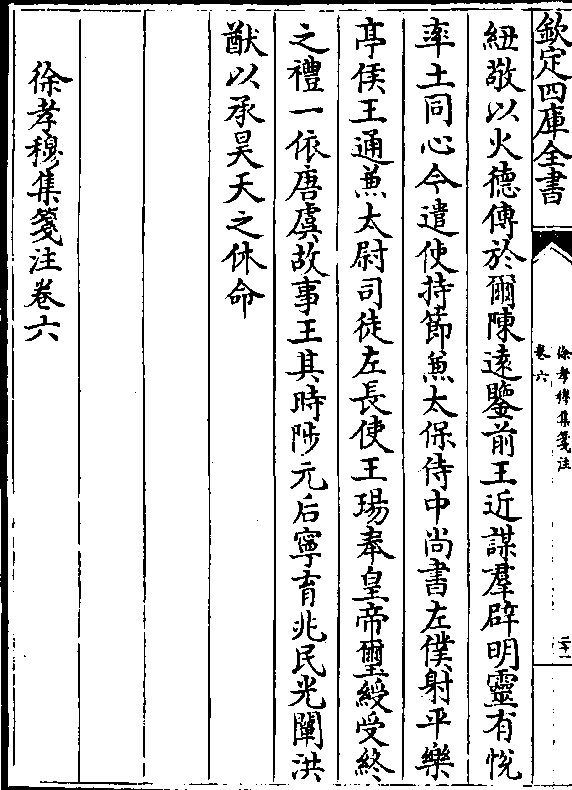 欽定四庫全書
徐孝穆集箋注
卷六
二十一
紐敬以火德傳於爾陳遠鑒前王近謀羣辟明靈有悅
率土同心今遣使持節兼太保侍中尚書左僕射平樂
亭侯王通兼太尉司徒左長使王瑒奉皇帝璽綬受終
之禮一依唐虞故事王其時陟元后寧育兆民光闡洪
猷以承昊天之休命
徐孝穆集箋注卷六